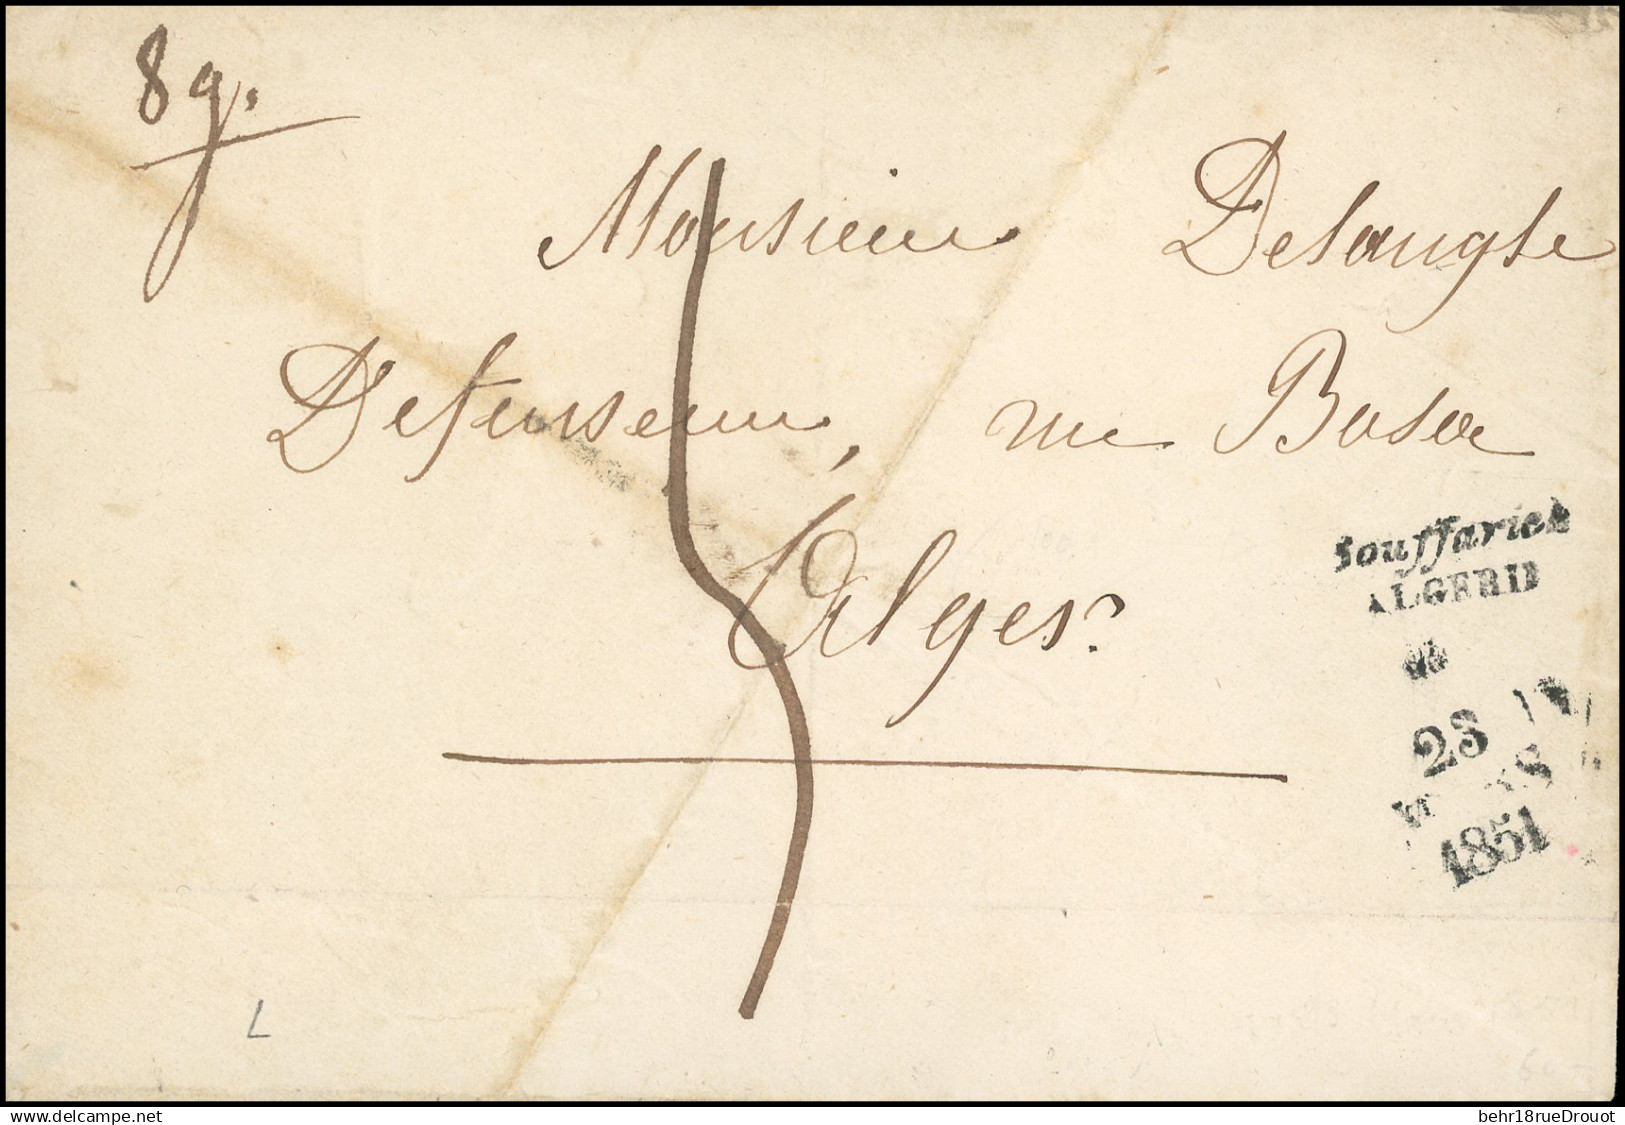 8 g.
Monsieur Delangle
Defenseur, rue Bosa
Alger
Bouffarick
ALGERIE
23
MARS
1851
L
www.delcampe.net
behr18rueDrouot